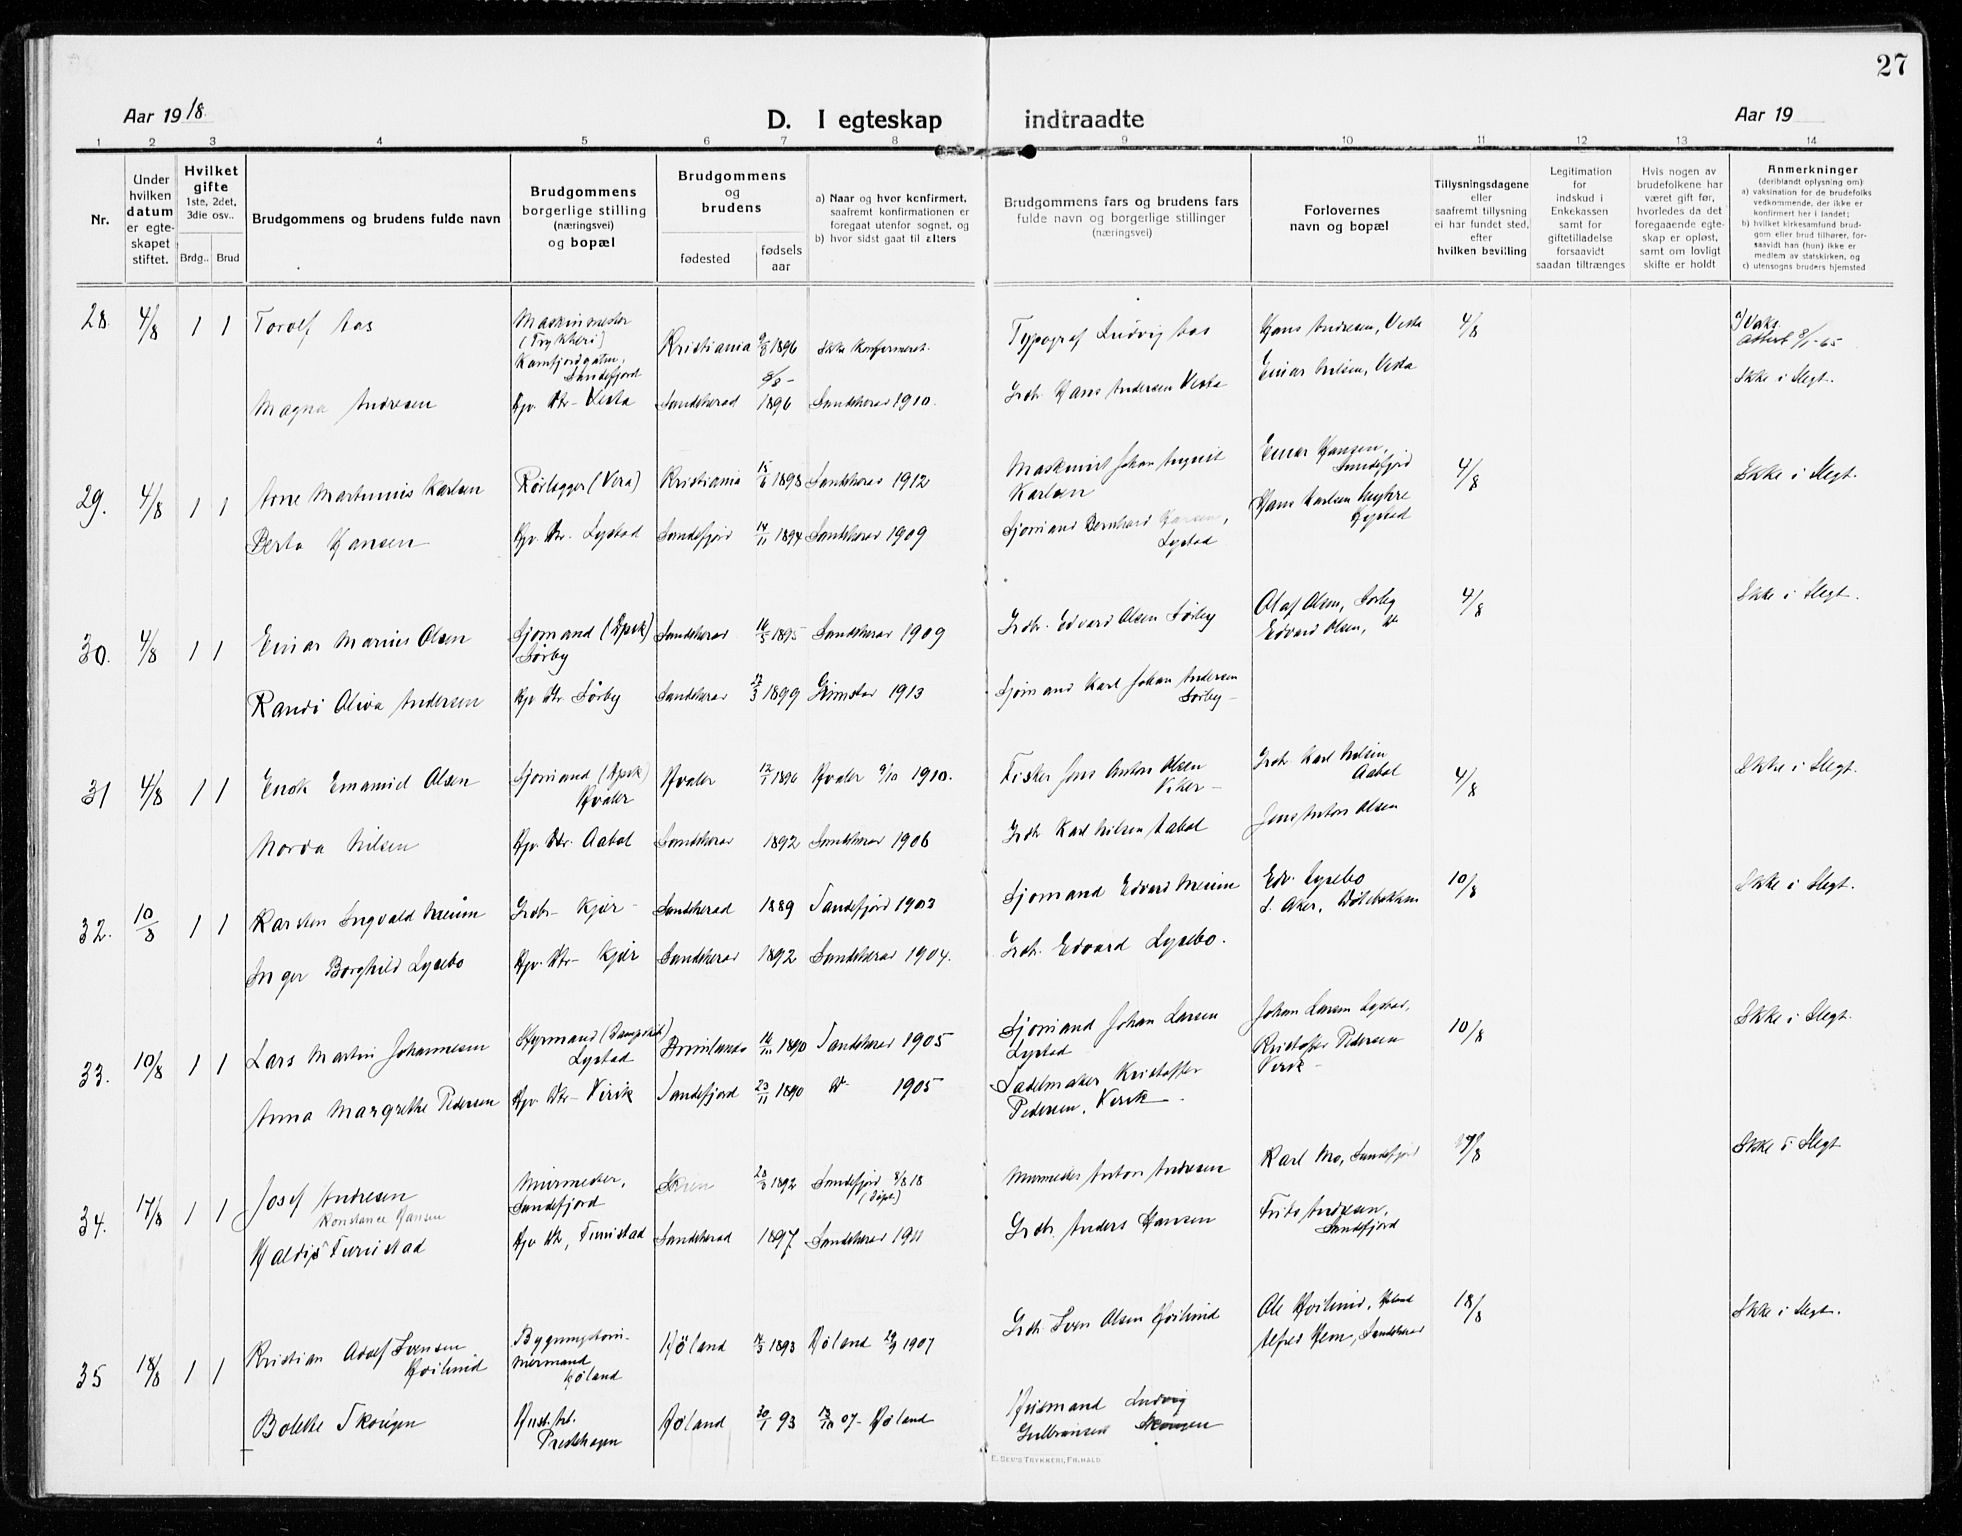 27
Aar 1918.
D. I egteskap indtraadte
Aar 19
1 2 3 4 5 6 7 8 9 10 11 12 13 14
Nr.
Under
hvilken
datum
er egte-
skapet
stiftet.
Hvilket
gifte
1ste, 2det,
3die osv..
Brdg.. Brud
Brudgommens og brudens fulde navn
Brudgommens
borgerlige stilling
(næringsvei)
og bopæl
Brudgommens
og
brudens
fødested
fødsels
aar
a) Naar og hvor konfirmert,
saafremt konfirmationen er
foregaat utenfor sognet, og
b) hvor sidst gaat til alters
Brudgommens fars og brudens fars
fulde navn og borgerlige stillinger
(næringsvei)
Forlovernes
navn og bopæl
Tillysningsdagene
eller
saafremt tillysning
ei har fundet sted,
efter
hvilken bevilling
Legitimation
for
indskud i
Enkekassen
samt for
giftetilladelse
forsaavidt
saadan tiltrænges
Hvis nogen av
brudefolkene har
været gift før,
hvorledes da det
foregaaende egte-
skap er opløst,
samt om lovligt
skifte er holdt
Anmerkninger
(deriblandt oplysning om):
a) vaksination for de brudefolks
vedkommende, der ikke er
konfirmert her i landet;
b) hvilket kirkesamfund brud-
gom eller brud tilhører, for-
saavidt han (hun) ikke er
medlem av statskirken, og
c) utensogns bruders hjemsted
28. 4/8 1 1 Torolf Aas
Maskinmester
(Trykkeri)
Kamfjordgaten,
Sandefjord
Kristiania 1896 Ikke konfirmeret.
Typograf Ludvig Aas
Hans Andresen, Vesta
4/8
a) Vaks.
Attest 8/1-65
Magna Andresen
Hjv. Dtr. Vesta Sandeherad 8/8- 1896 Sandeherad 1910.
Grdbr. Hans Andersen Vesta
Einar Nilsen, Vesta
Ikke i Slegt.
29. 4/8 1 1 Arne Martinius Karlsen
Rørlegger (Vera) Kristiania 15/6 1898 Sandeherad 1912
Maskinist Johan August
Karlsen
Einar Hansen,
Sandefjord
4/8
Ikke i Slegt.
Berta Hansen
Hjv. Dtr. Lystad Sandefjord 14/11 1894 Sandeherad 1909
Sjømand Bernhard Hansen,
Lystad
Hans Karlsen
30. 4/8 1 1 Einar Marius Olsen
Sjømand (Dpsk)
Sørby
Sandeherad 16/5 1895 Sandeherad 1909
Grdbr. Edvard Olsen Sørby
Olaf Olsen, Sørby
Edvard Olsen, do
4/8
Ikke i Slegt.
Randi Oliva Andersen
Hjv. Dtr. Sørby Sandeherad 1899 Grimstad 1913
Sjømand Karl Johan Andersen
Sørby -
31 4/8 1 1 Enok Emanuel Olsen
Sjømand (Dpsk)
Hvaler
Hvaler 12/1 1896 Hvaler 9/10 1910.
Fisker Jens Anton Olsen
Viker -
Grdbr. Karl Nilsen
Aabol
4/8
Ikke i Slegt.
Norda Nilsen
Hjv. Dtr. Aabol Sandeherad 1892 Sandeherad 1906
Grdbr. Karl Nilsen Aabol
Jens Anton Olsen
32. 10/8 1 1 Karsten Ingvald Meum
Grdbr- Kjær - Sandeherad 1889 Sandefjord 1903
Sjømand Edvard Meum
Edv. Lysebo
S. Aker, Bølebakken
10/8
Ikke i Slegt.
Inger Borghild Lysebo
Hjv. Dtr- Kjær Sandeherad 1892 Sandeherad 1904.
Grdbr. Edvard Lysebo.
33. 10/8 1 1 Lars Martin Johannesen
Styrmand (Dampskib)
Lystad
Brunlanes 1890 Sandeherad 1905
Sjømand Johan Larsen
Lystad
Johan Larsen Lystad,
Kristoffer Pedersen
Virik -
10/8
Ikke i Slegt.
Anna Margrethe Pedersen
Hjv. Dtr- Virik Sandefjord 23/11 1890 do 1905
Sadelmaker Kristoffer
Pedersen, Virik.
34. 17/8 1 1 Josef Andresen
Murmester,
Sandefjord
Skien 1892 Sandefjord 8/8 18
(Døpt.)
Murmester Anton Andresen
Karl Mo, Sandefjord
17/8
Ikke i Slegt
Konstance Hansen
Haldis Furustad
Hjv. Dtr, Furustad Sandeherad 1897. Sandeherad 1911
Grdbr. Anders Hansen
Frits Andresen,
Sandefjord
35 18/8 1 1 Kristian Adolf Svensen
Høilund
Bygningstøm-
mermand,
Høland
Høland 1893 Høland 1907
Grdbr. Sven Olsen Høilund
Ole Høilund, Høland
Alfred Hem, Sandeherad
18/8
Ikke i Slegt.
Bolette Skougen
Hust. Arb.
Prestehagen
Høland 30/1 93 13/10 07- Høland
Husmand Ludvig
Gulbransen Skougen
E. SEM'S TRYKKERI, FR.HALD